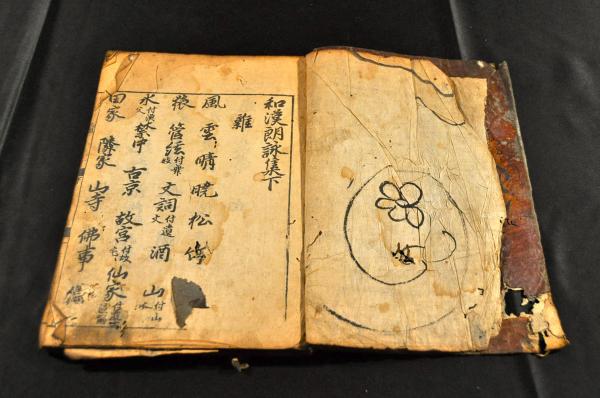 和漢朗詠集下
雜
風 雲 晴 曉 松
猿 管絃付舞妓 文詞付遺文 酒 山付山水
水付漁父 禁中 古京 故宮付故宅 仙家
田家 隣家 山寺 佛事 僧